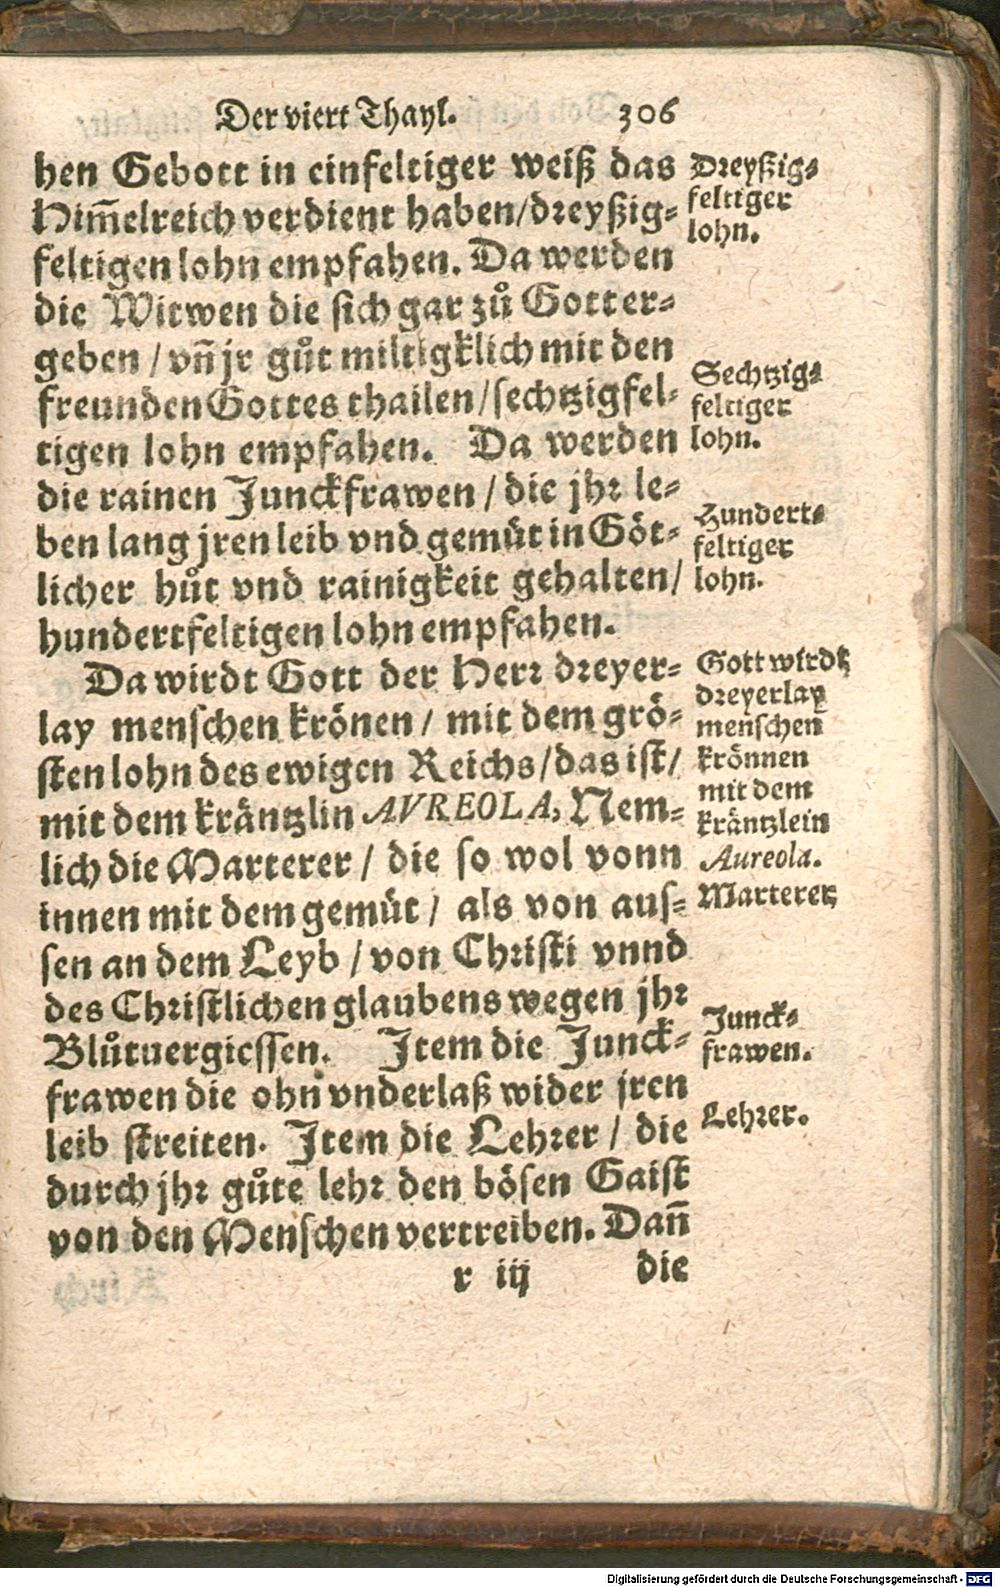 Der viert Thayl. 306
hen Gebott in einfeltiger weiß das
Him̃elreich verdient haben/dreyßig-
feltigen lohn empfahen. Da werden
die Witwen die sich gar zů Gott er-
geben / vñ jr gůt miltigklich mit den
freunden Gottes thailen/sechtzigfel-
tigen lohn empfahen. Da werden
die rainen Junckfrawen / die jhr le-
ben lang jren leib vnd gemüt in Göt-
licher hůt vnd rainigkeit gehalten/
hundertfeltigen lohn empfahen.
Da wirdt Gott der Herr dreyer-
lay menschen krönen / mit dem grö-
sten lohn des ewigen Reichs/das ist/
mit dem kräntzlin AVREOLA, Nem-
lich die Marterer / die so wol vonn
innen mit dem gemüt / als von aus-
sen an dem Leyb / von Christi vnnd
des Christlichen glaubens wegen jhr
Blůtuergiessen. Item die Junck-
frawen die ohn vnderlaß wider jren
leib streiten. Item die Lehrer / die
durch jhr gůte lehr den bösen Gaist
von den Menschen vertreiben. Dañ
r iij die
Dreyßig-
feltiger
lohn.
Sechtzig-
feltiger
lohn.
Hundert-
feltiger
lohn.
Gott wirdt
dreyerlay
menschen
krönnen
mit dem
kräntzlein
Aureola.
Marterer
Junck-
frawen.
Lehrer.
Digitalisierung gefördert durch die Deutsche Forschungsgemeinschaft - DFG